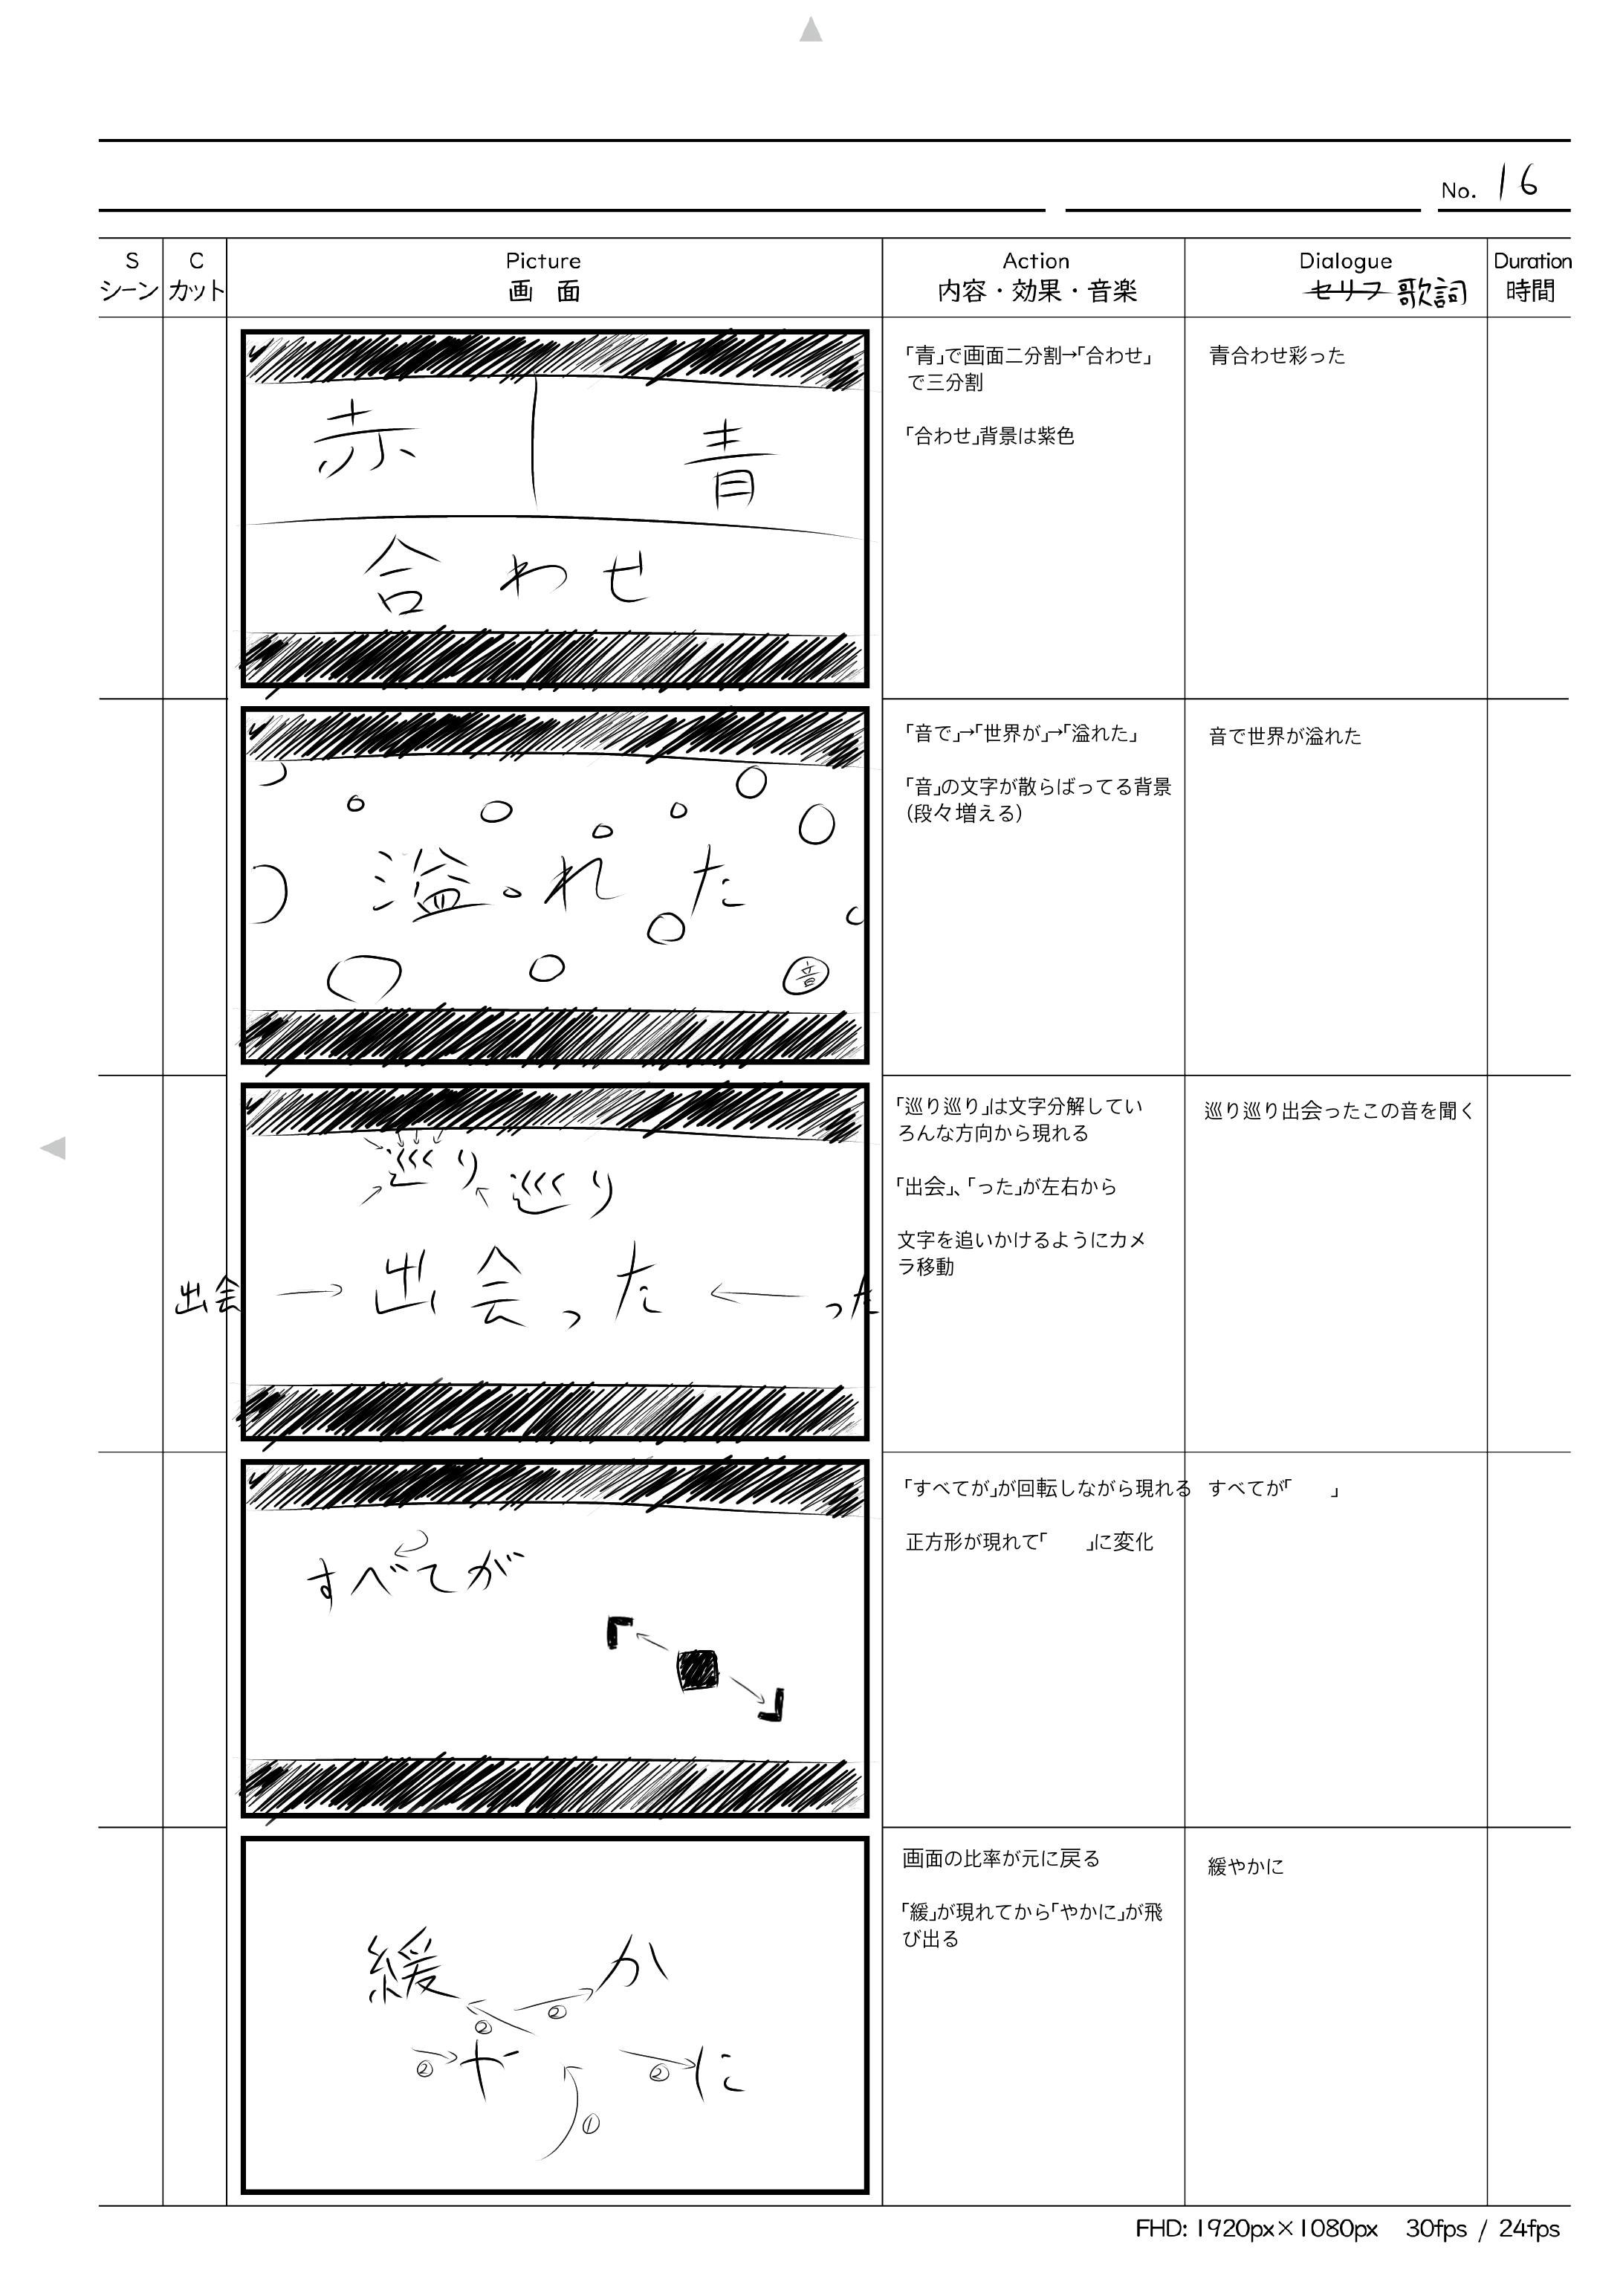 No. 16
S C Picture Action Dialogue Duration
シーン カット 画 面 内容・効果・音楽 セリフ 歌詞 時間
赤 青
合わせ
「青」で画面二分割→「合わせ」
で三分割
「合わせ」背景は紫色
青合わせ彩った
溢れた
音
「音で」→「世界が」→「溢れた」
「音」の文字が散らばってる背景
(段々増える)
音で世界が溢れた
巡り巡り
出会 → 出会った ← った
「巡り巡り」は文字分解してい
ろんな方向から現れる
「出会」、「った」が左右から
文字を追いかけるようにカメ
ラ移動
巡り巡り出会ったこの音を聞く
すべてが
「 」
「すべてが」が回転しながら現れる
正方形が現れて「　　」に変化
すべてが「　　」
緩 か
② ②
② や ② に
①
画面の比率が元に戻る
「緩」が現れてから「やかに」が飛
び出る
緩やかに
FHD: 1920px×1080px 30fps / 24fps